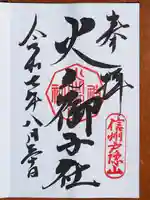 奉拝
火之御子社
信州戸隠山
令和七年八月三十日